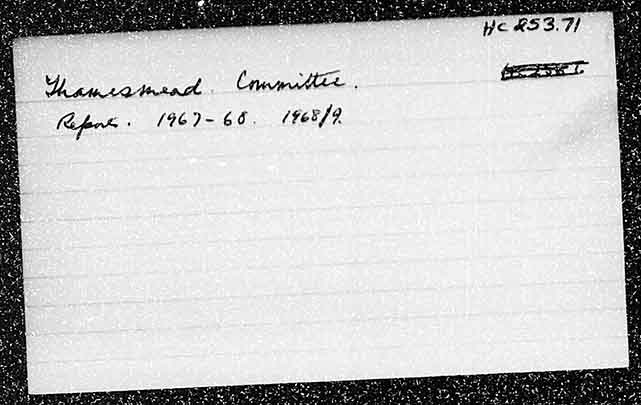 HC 853.71
Thamesmead Committee.
Reports. 1967-68. 1968/9.